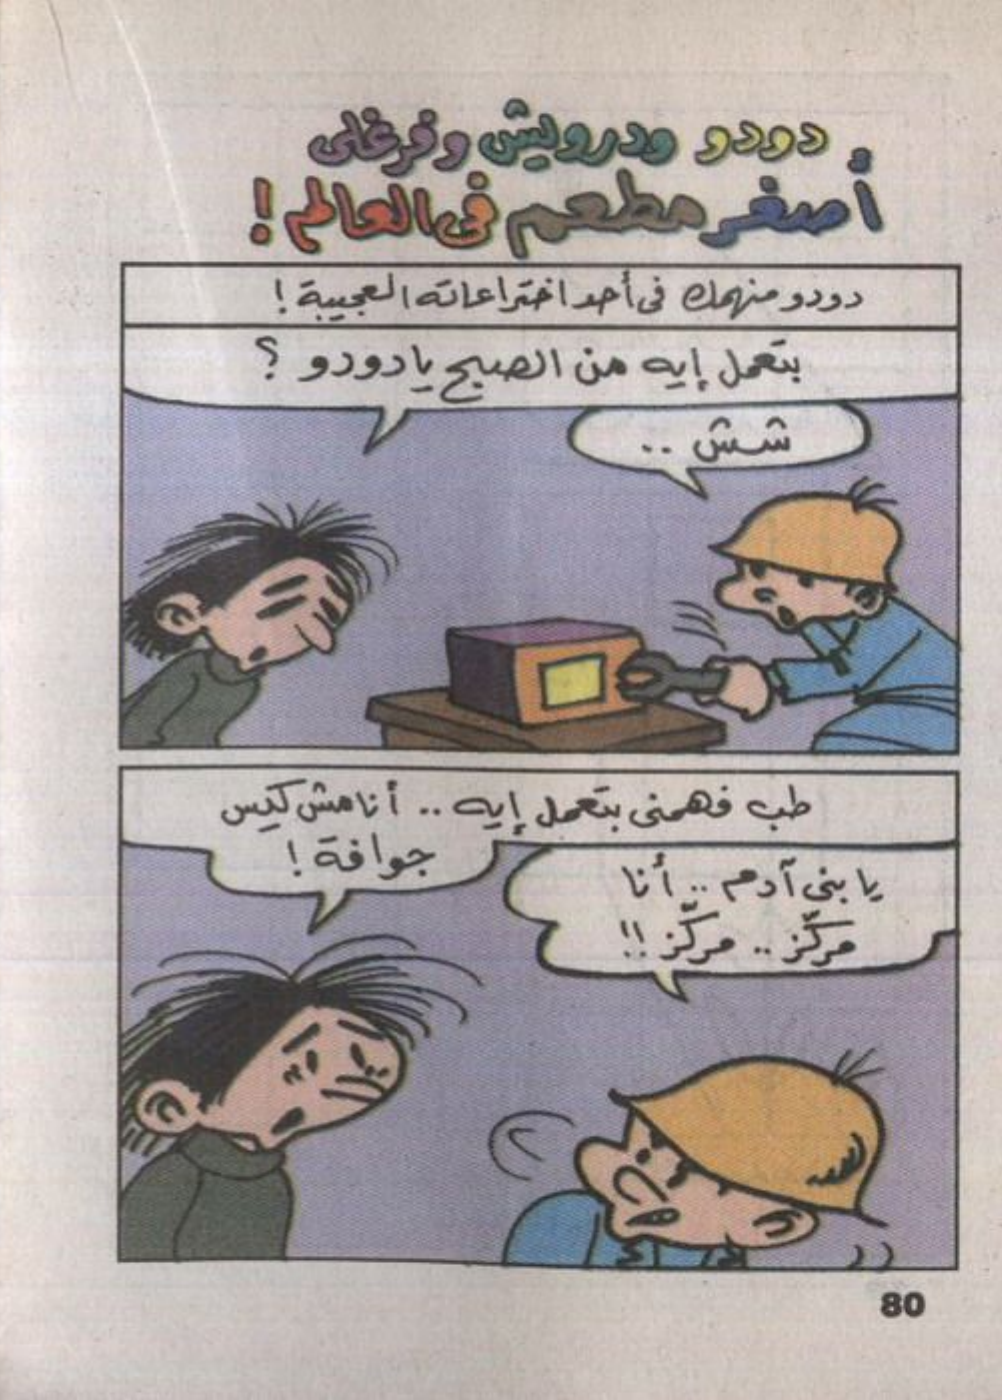 دودو ودرويش وفرغلى
أصغر مطعم فى العالم!
دودو منهمك فى أحد اختراعاته العجيبة!
بتعمل إيه من الصبح يا دودو ؟
شش ..
طب فهمنى بتعمل إيه .. أنا مش كيس
جوافة!
يا بنى آدم .. أنا
مركّز .. مركّز !!
80